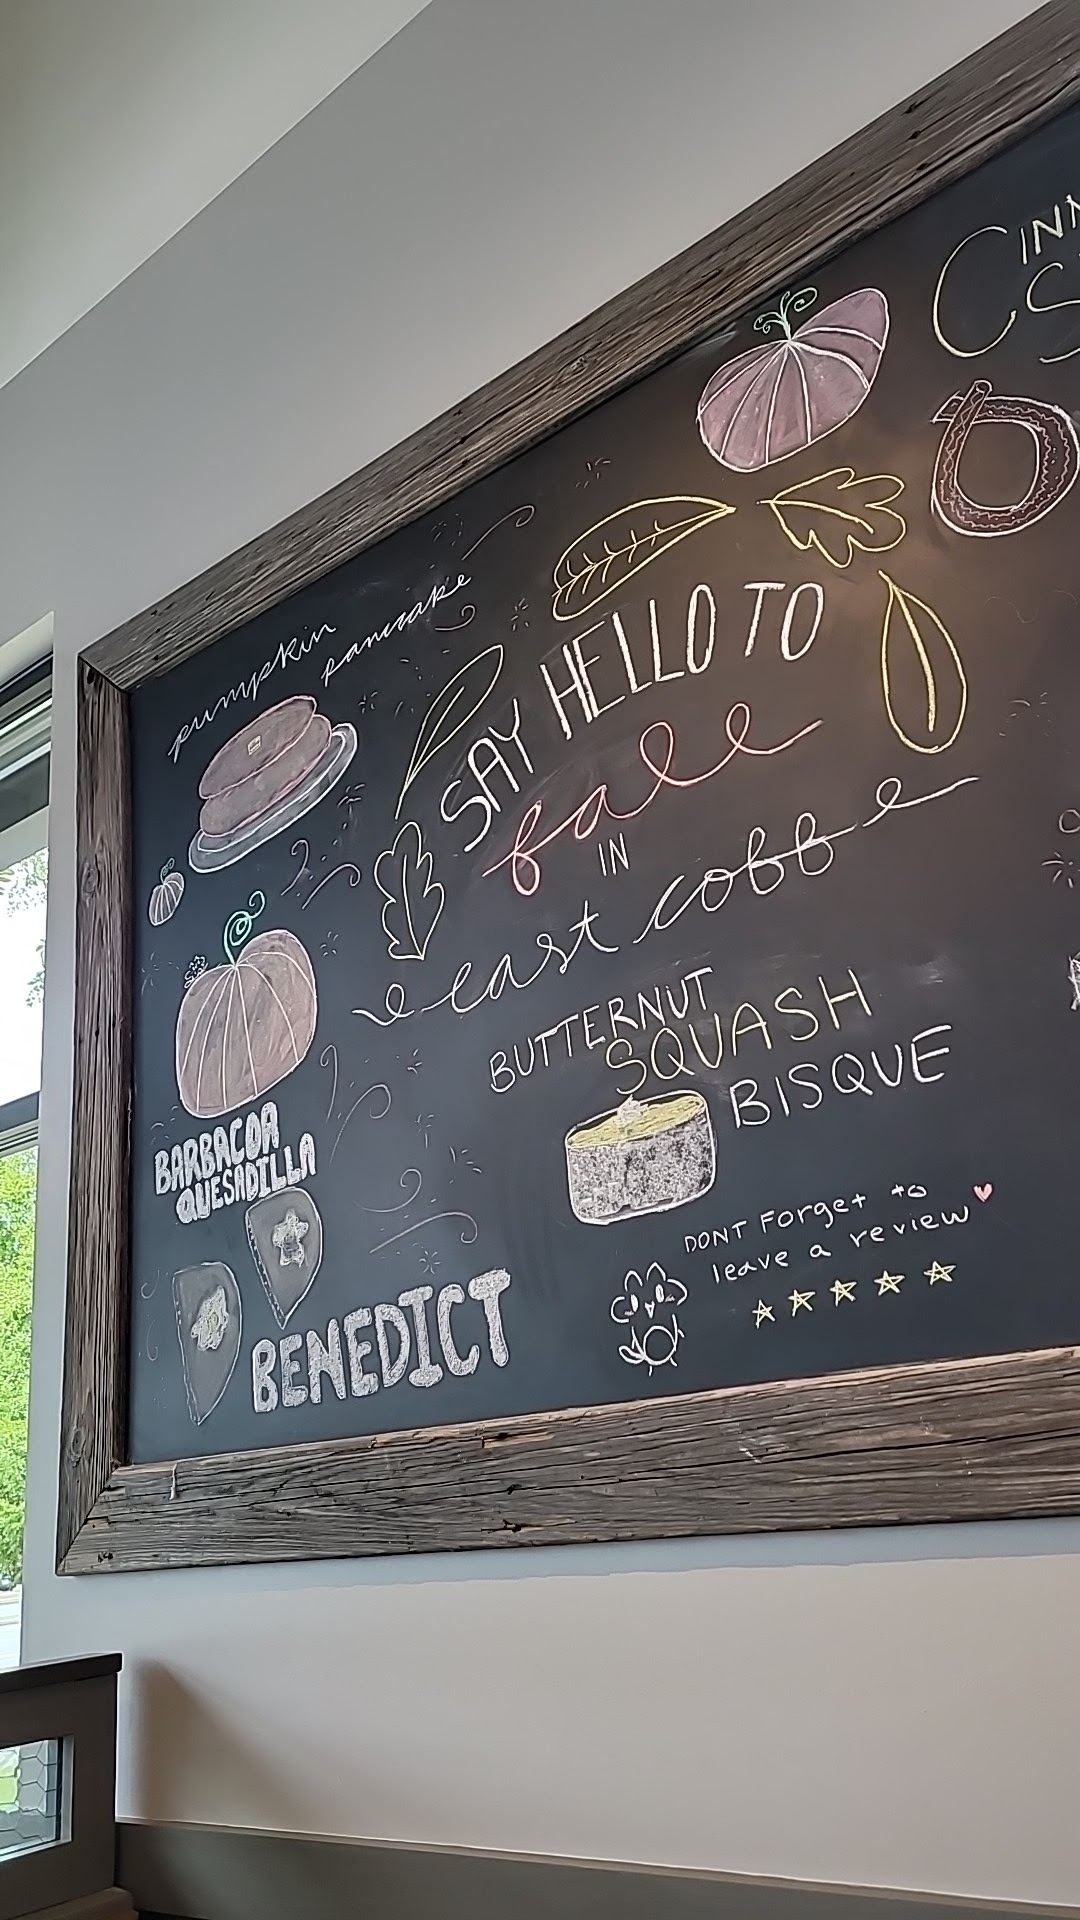 pumpkin
pancake
SAY HELLO TO
fall
IN
east cobb
BUTTERNUT
SQUASH
BISQUE
BARBACOA
QUESADILLA
BENEDICT
DONT Forget to
leave a review